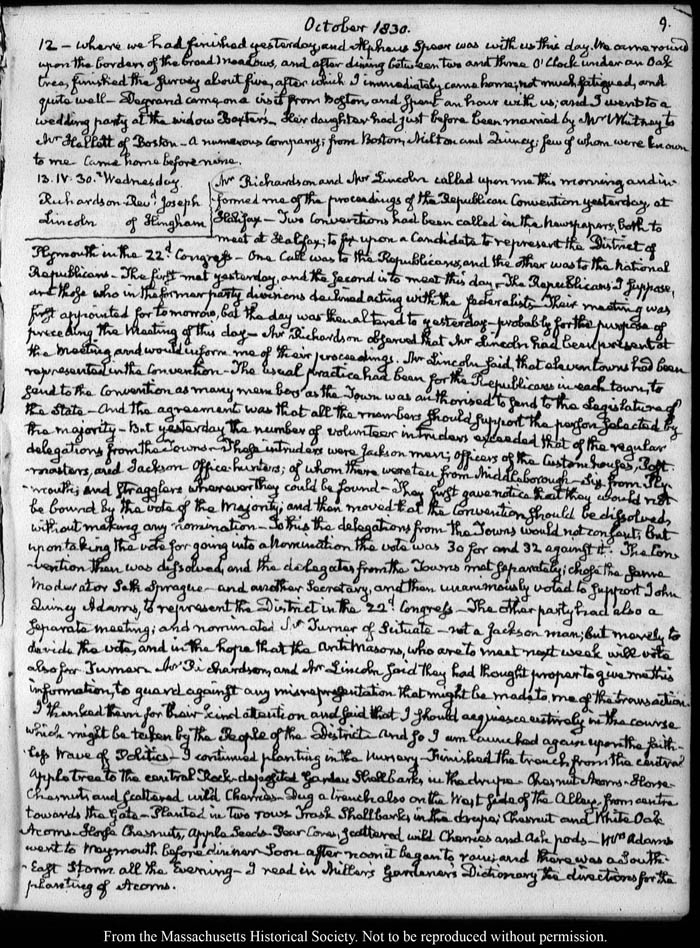 October 1830.
9.
12 – where we had finished yesterday, and Alpheus Spear was with us this day. We came round
upon the borders of the broad meadows, and after dining between two and three O'Clock under an Oak
tree, finished the Survey about five, after which I immediately came home; not much fatigued, and
quite well – Degrand came on a visit from Boston, and spent an hour with us; and I went to a
wedding party at the widow Baxter's – Her daughter had just before been married by Mr Whitney to
Mr Hallett of Boston – A numerous Company; from Boston, Milton and Quincy; few of whom were known
to me. Came home before nine.
13. IV. 30. Wednesday.
Richardson Revd Joseph
Lincoln of Hingham
Mr Richardson and Mr Lincoln called upon me this morning and in-
formed me of the proceedings of the Republican Convention yesterday, at
Halifax – Two Conventions had been called in the Newspapers, both to
meet at Halifax; to fix upon a Candidate to represent the District of
Plymouth in the 22d Congress – One Call was to the Republicans, and the other was to the National
Republicans – The first met yesterday, and the second is to meet this day – The Republicans I suppose,
are those who in the former party divisions declined acting with the federalists – Their meeting was
first appointed for tomorrow, but the day was then altered to yesterday – probably for the purpose of
preceding the Meeting of this day – Mr Richardson observed that Mr Lincoln had been present at
the Meeting and would inform me of their proceedings. Mr Lincoln said, that eleven towns had been
represented in the Convention – The usual practice had been for the Republicans in each town, to
send to the Convention as many members as the Town was authorised to send to the Legislature of
the State – And the agreement was that all the members should support the person selected by
the majority – But yesterday the number of volunteer intruders exceeded that of the regular
delegations from the Towns – Those intruders were Jackson men; officers of the Custom houses, Post-
masters, and Jackson Office-hunters; of whom there were ten from Middleborough – six from Ply-
-mouth; and stragglers wherever they could be found – They first gave notice that they would not
be bound by the vote of the Majority; and then moved that the Convention should be dissolved,
without making any nomination – To this the delegations from the Towns would not consent; but
upon taking the vote for going into a Nomination the vote was 30 for and 32 against it. The Con-
-vention then was dissolved, and the delegates from the Towns met separately; chose the same
Moderator Seth Sprague – and another Secretary, and then unanimously voted to support John
Quincy Adams, to represent the District in the 22d Congress – The other party had also a
separate meeting; and nominated Turner of Scituate – not a Jackson man; but merely to
divide the vote, and in the hope that the Anti Masons, who are to meet next week will vote
also for Turner. Mr Richardson, and Mr Lincoln said they had thought proper to give me this
information, to guard against any misrepresentation that might be made to me of the transaction.
I thanked them for their kind attention and said that I should acquiesce entirely in the course
which might be taken by the People of the District – And so I am launched again upon the faith-
-less wave of Politics – I continued planting in the Nursery – Finished the trench, from the central
Apple tree to the central Rock – deposited Garden Shellbarks in the drupe – Chesnut Acorns – Horse-
Chesnuts and scattered wild Cherries – Dug a trench also on the West side of the Alley, from centre
towards the Gate – Planted in two rows Trask Shellbarks in the drupe; Chesnut and White Oak
Acorns – Horse Chesnuts, Apple Seeds – Pear Cores, scattered wild Cherries and Ash pods – Wm Adams
went to Weymouth before dinner. Soon after noon it began to rain; and there was a South-
-East Storm all the Evening – I read in Miller's Gardener's Dictionary the directions for the
planting of Acorns.
From the Massachusetts Historical Society. Not to be reproduced without permission.